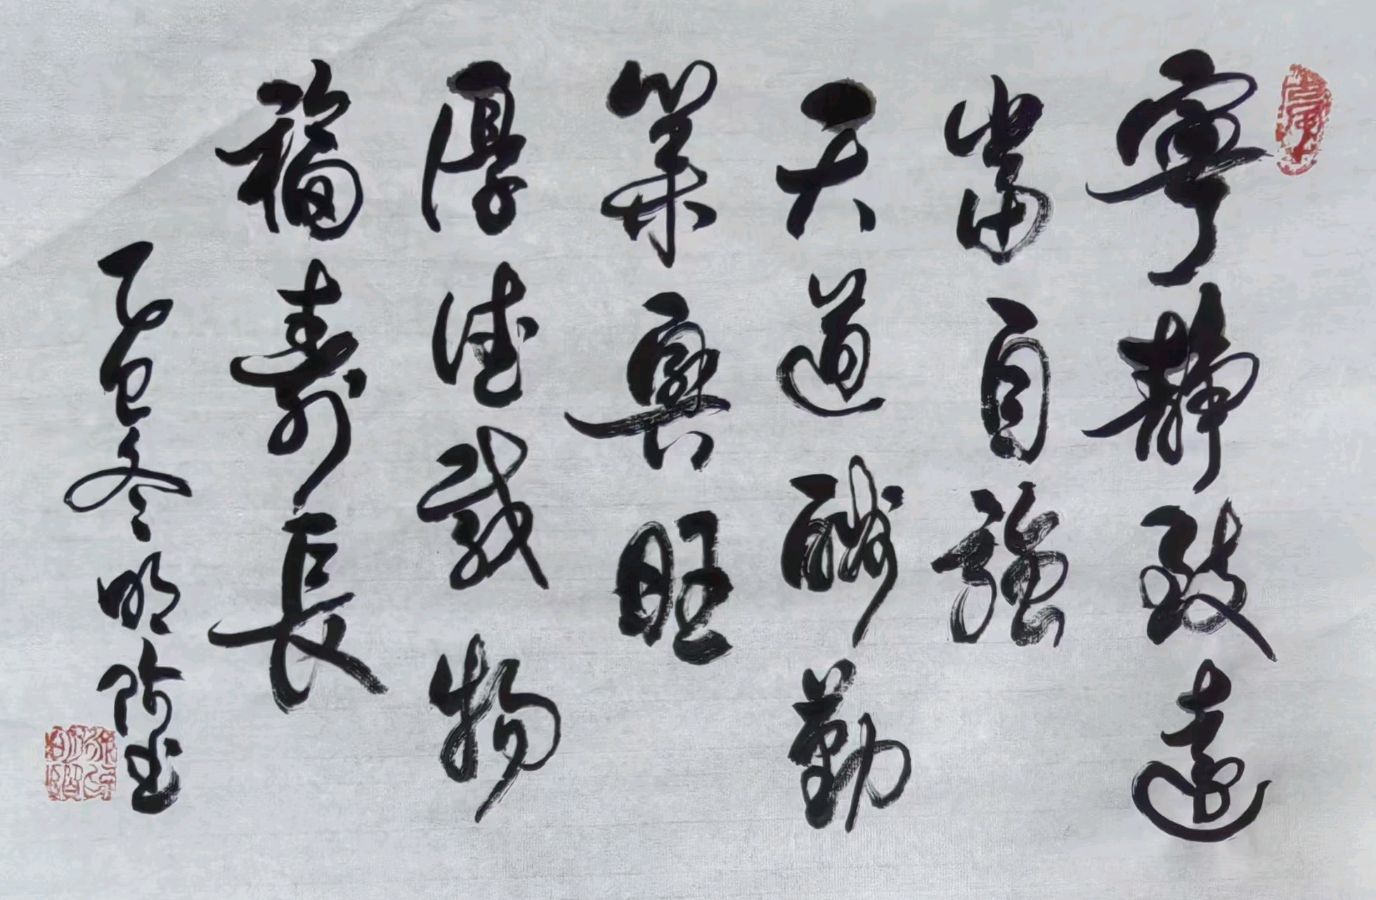 寧靜致遠
當自強
天道酬勤
業興旺
厚德載物
福壽長
乙巳冬明陽书